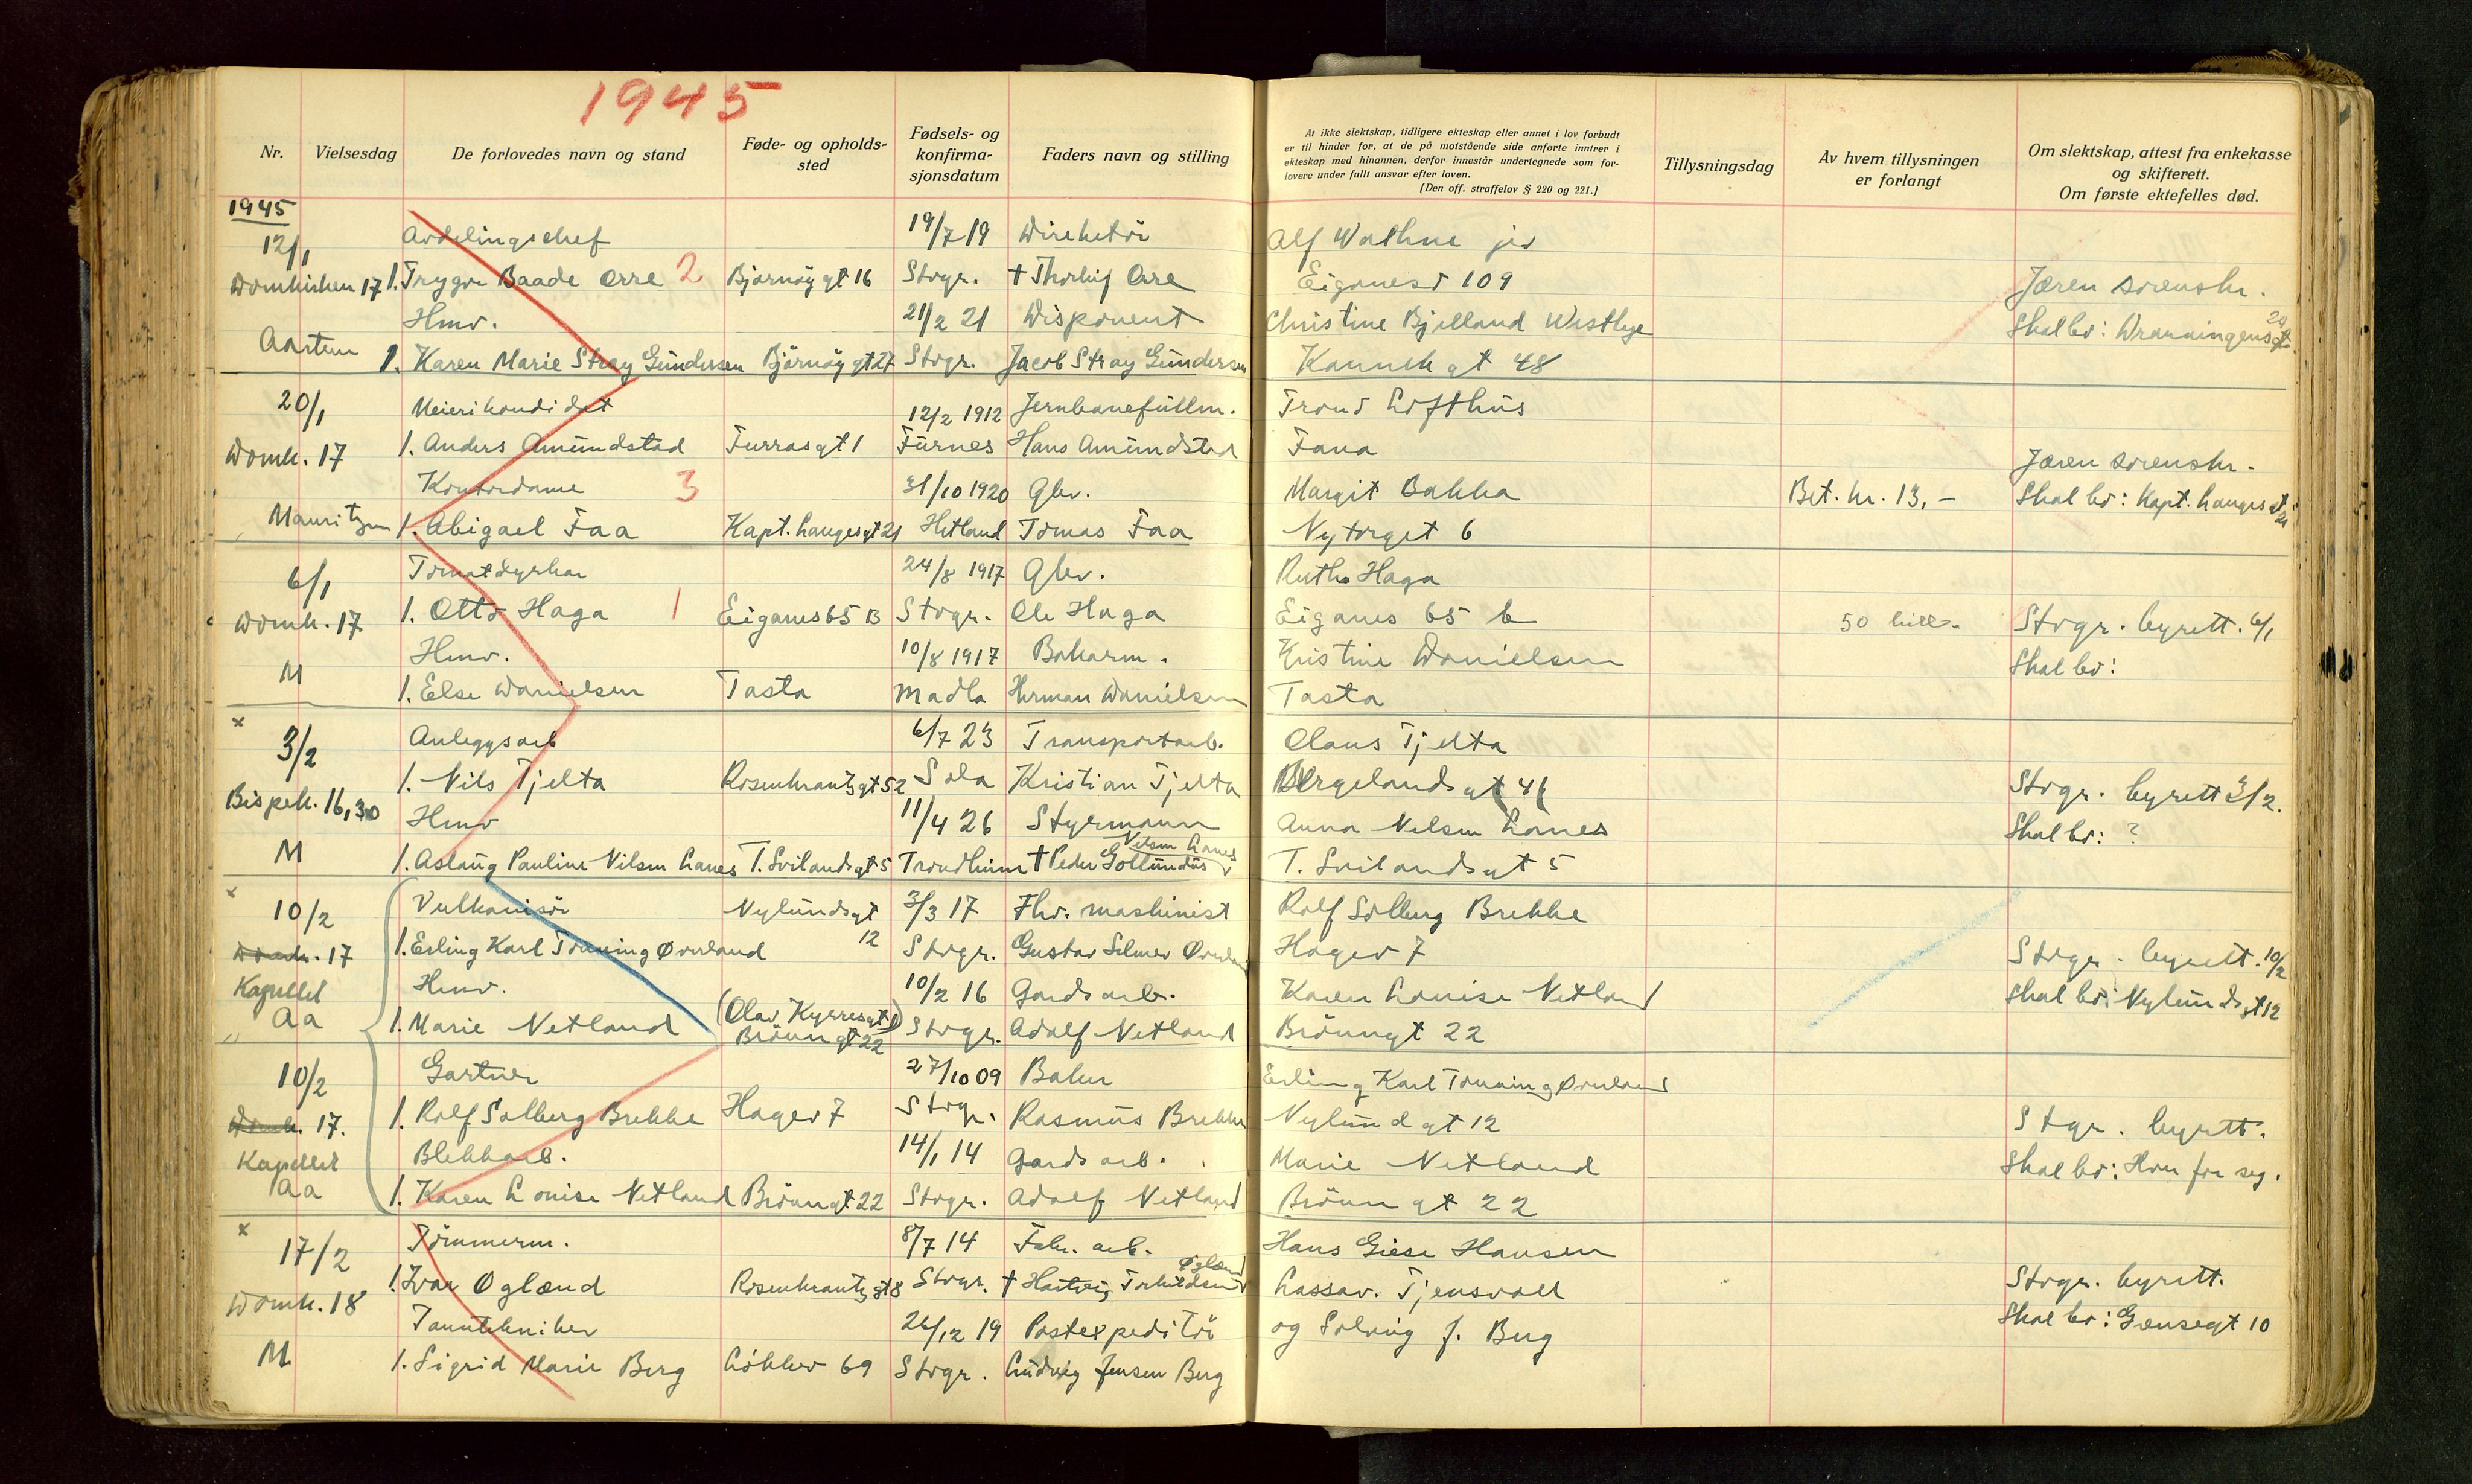 1945
Nr.
Vielsesdag
De forlovedes navn og stand
Føde- og opholds-
sted
Fødsels- og
konfirma-
sjonsdatum
Faders navn og stilling
At ikke slektskap, tidligere ekteskap eller annet i lov forbudt
er til hinder for, at de på motstående side anførte inntrer i
ekteskap med hinannen, derfor innestår undertegnede som for-
lovere under fullt ansvar efter loven.
(Den off. straffelov § 220 og 221.)
Tillysningsdag
Av hvem tillysningen
er forlangt
Om slektskap, attest fra enkekasse
og skifterett.
Om første ektefelles død.
1945
12/1 Avdelingschef 19/7 19 Direktör Alf Wathne jr
Domkirken 17 1. Trygve Baade Orre 2 Bjørnøygt 16 Stvgr. † Thorleif Orre Eiganesv 109 Jæren sorenskr.
Hmv. 21/2 21 Disponent Christine Bjelland Westbye Skal bo: Dronningensgt 20
Aartun 1. Karen Marie Stray Gundersen Bjørnøygt 27 Stvgr. Jacob Stray Gundersen Kannikgt 48
20/1 Meierikandidat 12/2 1912 Jernbanefullm. Trond Lofthus
Domk. 17 1. Anders Amundstad Furrasgt 1 Furnes Hans Amundstad Fana Jæren sorenskr.
Kontordame 3 31/10 1920 Gbr. Margit Bakka Bet. kr. 13,- Skal bo: Kapt. Langesgt 21
Mauritzen 1. Abigael Faa Kapt. Langesgt 21 Hetland Tomas Faa Nytorget 6
6/1 Tomatdyrker 24/8 1917 Gbr. Ruth Haga
Domk. 17 1. Otto Haga 1 Eiganes 65 B Stvgr. Ole Haga Eiganes 65 b 50 Stvgr. byrett. 6/1
Hmv. 10/8 1917 Bakerm. Kristine Danielsen Skal bo:
M 1. Else Danielsen Tasta Madla Herman Danielsen Tasta
x
3/2 Anleggsarb 6/7 23 Transportarb. Claus Tjelta
Bispek. 16,30 1. Nils Tjelta Rosenkrantzgt 52 Sola Kristian Tjelta Bergelandsgt 41 Stvgr. byrett 3/2.
Hmv 11/4 26 Styrmann Anna Nilsen Lanes Skal bo: ?
M 1. Aslaug Pauline Nilsen Lanes T. Svilandsgt 5 Trondheim † Peder Gollundus Nilsen Lanes T. Svilandsgt 5
x
10/2 Vulkanisör Nylundsgt 12 3/3 17 Fhv. maskinist Rolf Solberg Brekke
Domk. 17 1. Erling Karl Tønning Ovrland Stvgr. Gustav Selmer Ovrland Hagev 7 Stvgr. byrett. 10/2
Kapellet Hmv. 10/2 16 Gardsarb. Karen Louise Netland Skal bo: Nylundsgt 12
Aa 1. Marie Netland (Olav Kyrresgt) Bröunngt 22 Stvgr. Adolf Netland Brönngt 22
10/2 Gartner 27/10 09 Baker Erling Karl Tønning Ovrland
Domk. 17. 1. Rolf Solberg Brekke Hagev 7 Stvgr. Rasmus Brekke Nylundgt 12 Stgr. byrett.
Kapellet Blekkarb. 14/1 14 Gardsarb. Marie Netland Skal bo: Hver for seg.
Aa 1. Karen Louise Netland Brönngt 22 Stvgr. Adolf Netland Brönngt 22
x
17/2 Tömmerm. 8/7 14 Fabr. arb. Hans Giese Hansen
Domk. 18 1. Ivar Oglænd Rosenkrantzgt 8 Stvgr. † Hartvig Torkildsen Oglænd Lassav. Tjensvoll Stvgr. byrett.
Tanntekniker 26/12 19 Postexpeditör og Solveig f. Berg Skal bo: Gausegt 10
M 1. Sigrid Marie Berg Lökkev 69 Stvgr. Ludvig Jensen Berg